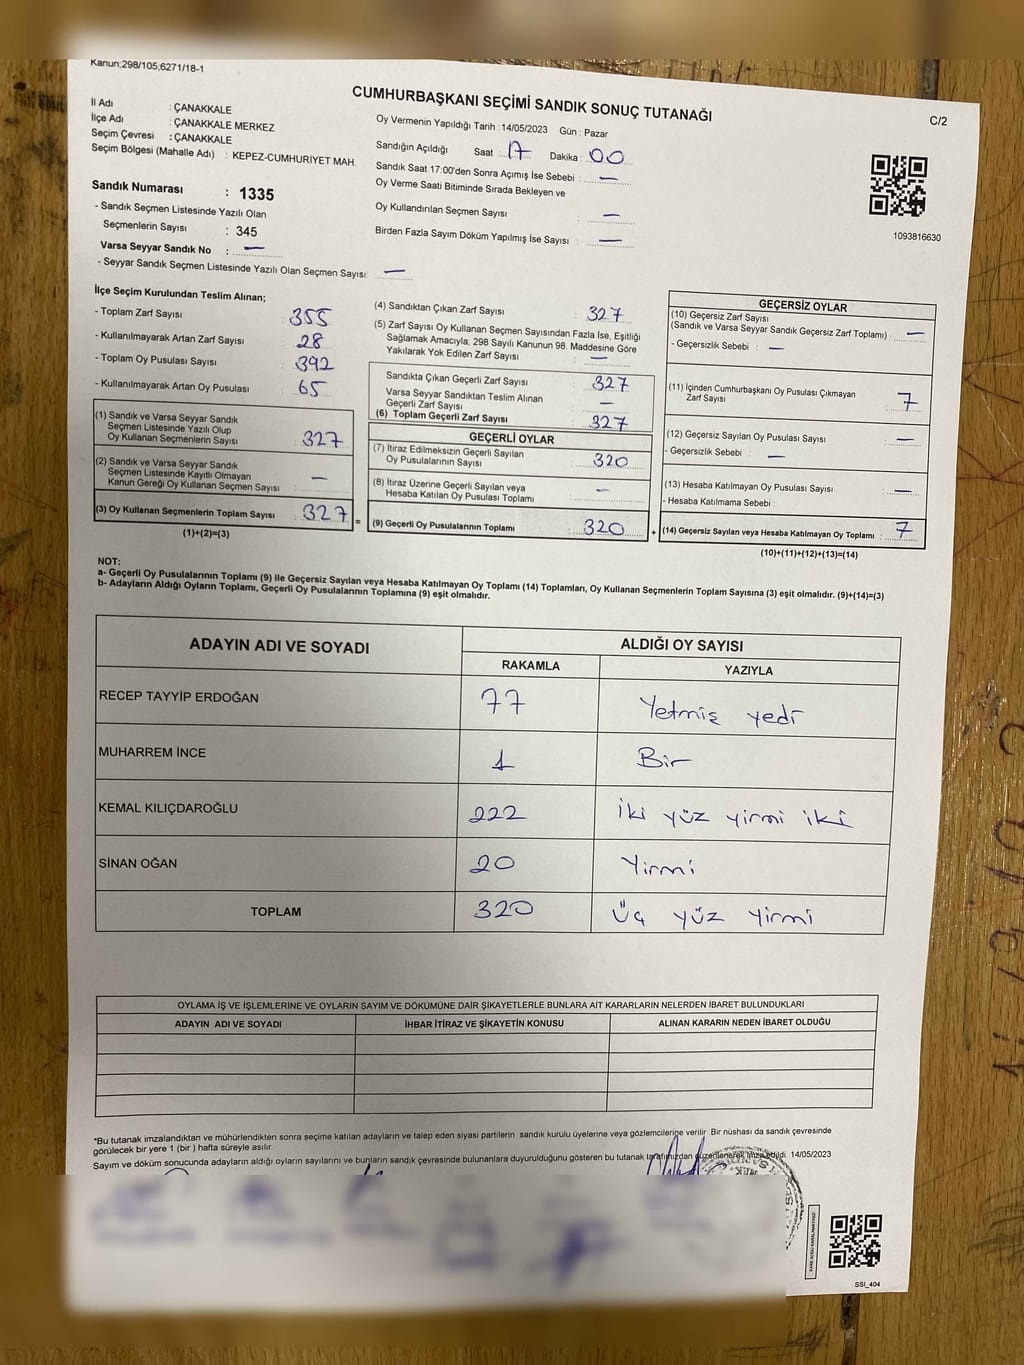 Kanun;298/105;6271/18-1
CUMHURBAŞKANI SEÇİMİ SANDIK SONUÇ TUTANAĞI
C/2
İl Adı : ÇANAKKALE
İlçe Adı : ÇANAKKALE MERKEZ
Seçim Çevresi : ÇANAKKALE
Seçim Bölgesi (Mahalle Adı) : KEPEZ-CUMHURİYET MAH.
Sandık Numarası : 1335
- Sandık Seçmen Listesinde Yazılı Olan
Seçmenlerin Sayısı : 345
Varsa Seyyar Sandık No : —
- Seyyar Sandık Seçmen Listesinde Yazılı Olan Seçmen Sayısı: —
Oy Vermenin Yapıldığı Tarih : 14/05/2023 Gün : Pazar
Sandığın Açıldığı Saat : 17 Dakika : 00
Sandık Saat 17:00'den Sonra Açımış İse Sebebi : —
Oy Verme Saati Bitiminde Sırada Bekleyen ve
Oy Kullandırılan Seçmen Sayısı : —
Birden Fazla Sayım Döküm Yapılmış İse Sayısı : —
1093816630
İlçe Seçim Kurulundan Teslim Alınan;
- Toplam Zarf Sayısı : 355
- Kullanılmayarak Artan Zarf Sayısı : 28
- Toplam Oy Pusulası Sayısı : 392
- Kullanılmayarak Artan Oy Pusulası : 65
(1) Sandık ve Varsa Seyyar Sandık
Seçmen Listesinde Yazılı Olup
Oy Kullanan Seçmenlerin Sayısı : 327
(2) Sandık ve Varsa Seyyar Sandık
Seçmen Listesinde Kayıtlı Olmayan
Kanun Gereği Oy Kullanan Seçmen Sayısı : —
(3) Oy Kullanan Seçmenlerin Toplam Sayısı : 327 =
(1)+(2)=(3)
(4) Sandıktan Çıkan Zarf Sayısı : 327
(5) Zarf Sayısı Oy Kullanan Seçmen Sayısından Fazla İse, Eşitliği
Sağlamak Amacıyla; 298 Sayılı Kanunun 98. Maddesine Göre
Yakılarak Yok Edilen Zarf Sayısı : —
Sandıkta Çıkan Geçerli Zarf Sayısı : 327
Varsa Seyyar Sandıktan Teslim Alınan
Geçerli Zarf Sayısı : —
(6) Toplam Geçerli Zarf Sayısı : 327
GEÇERLİ OYLAR
(7) İtiraz Edilmeksizin Geçerli Sayılan
Oy Pusulalarının Sayısı : 320
(8) İtiraz Üzerine Geçerli Sayılan veya
Hesaba Katılan Oy Pusulası Toplamı : —
(9) Geçerli Oy Pusulalarının Toplamı : 320 +
GEÇERSİZ OYLAR
(10) Geçersiz Zarf Sayısı
(Sandık ve Varsa Seyyar Sandık Geçersiz Zarf Toplamı) : —
- Geçersizlik Sebebi : —
(11) İçinden Cumhurbaşkanı Oy Pusulası Çıkmayan
Zarf Sayısı : 7
(12) Geçersiz Sayılan Oy Pusulası Sayısı : —
- Geçersizlik Sebebi : —
(13) Hesaba Katılmayan Oy Pusulası Sayısı : —
- Hesaba Katılmama Sebebi :
(14) Geçersiz Sayılan veya Hesaba Katılmayan Oy Toplamı : 7
(10)+(11)+(12)+(13)=(14)
NOT:
a- Geçerli Oy Pusulalarının Toplamı (9) ile Geçersiz Sayılan veya Hesaba Katılmayan Oy Toplamı (14) Toplamları, Oy Kullanan Seçmenlerin Toplam Sayısına (3) eşit olmalıdır. (9)+(14)=(3)
b- Adayların Aldığı Oyların Toplamı, Geçerli Oy Pusulalarının Toplamına (9) eşit olmalıdır.
ADAYIN ADI VE SOYADI ALDIĞI OY SAYISI
RAKAMLA YAZIYLA
RECEP TAYYİP ERDOĞAN 77 Yetmiş yedi
MUHARREM İNCE 1 Bir
KEMAL KILIÇDAROĞLU 222 iki yüz yirmi iki
SİNAN OĞAN 20 Yirmi
TOPLAM 320 Üç yüz yirmi
OYLAMA İŞ VE İŞLEMLERİNE VE OYLARIN SAYIM VE DÖKÜMÜNE DAİR ŞİKAYETLERLE BUNLARA AİT KARARLARIN NELERDEN İBARET BULUNDUKLARI
ADAYIN ADI VE SOYADI İHBAR İTİRAZ VE ŞİKAYETİN KONUSU ALINAN KARARIN NEDEN İBARET OLDUĞU
*Bu tutanak imzalandıktan ve mühürlendikten sonra seçime katılan adayların ve talep eden siyasi partilerin sandık kurulu üyelerine veya gözlemcilerine verilir. Bir nüshası da sandık çevresinde
görülecek bir yere 1 (bir ) hafta süreyle asılır
Sayım ve döküm sonucunda adayların aldığı oyların sayılarını ve bunların sandık çevresinde bulunanlara duyurulduğunu gösteren bu tutanak tarafımızdan düzenlenerek imza edildi. 14/05/2023
SSI_404